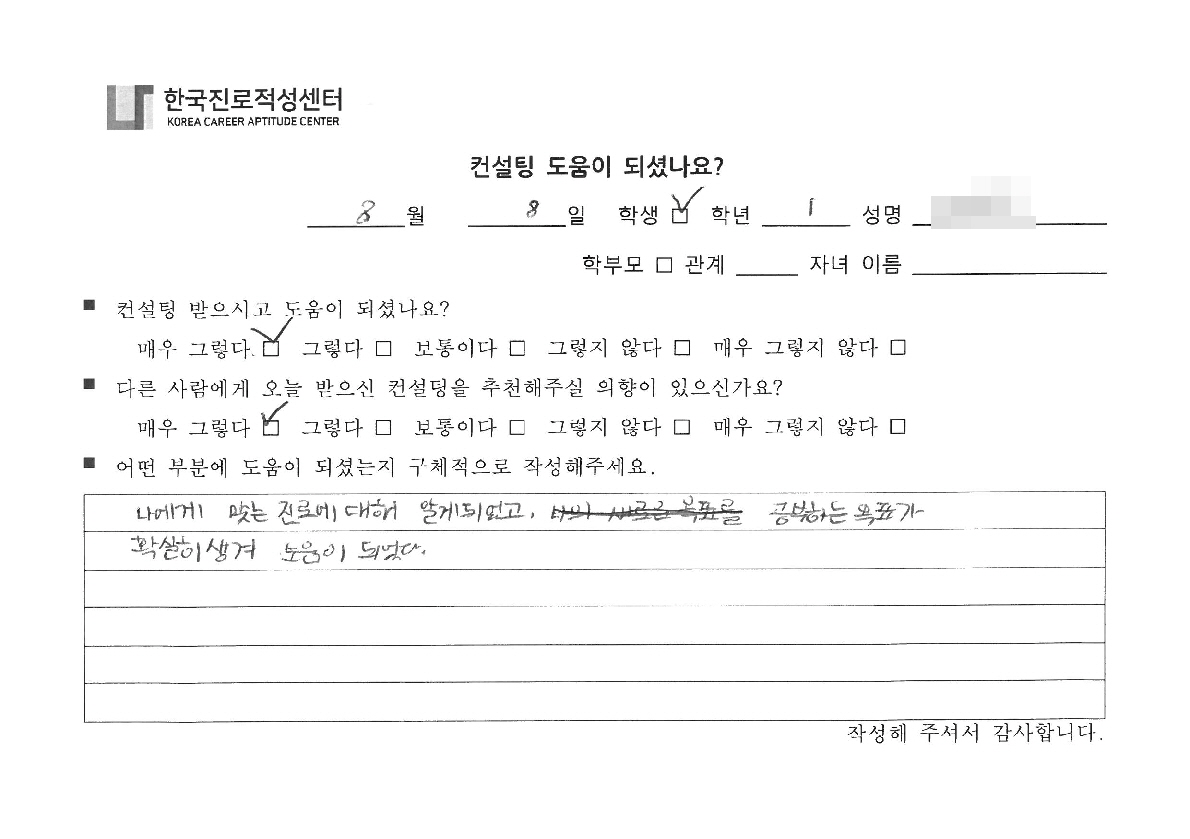 한국진로적성센터
KOREA CAREER APTITUDE CENTER
컨설팅 도움이 되셨나요?
8 월 8 일 학생 ☑ 학년 1 성명
학부모 □ 관계 자녀 이름
■ 컨설팅 받으시고 도움이 되셨나요?
매우 그렇다 ☑ 그렇다 □ 보통이다 □ 그렇지 않다 □ 매우 그렇지 않다 □
■ 다른 사람에게 오늘 받으신 컨설팅을 추천해주실 의향이 있으신가요?
매우 그렇다 ☑ 그렇다 □ 보통이다 □ 그렇지 않다 □ 매우 그렇지 않다 □
■ 어떤 부분에 도움이 되셨는지 구체적으로 작성해주세요.
나에게 맞는 진로에 대해 알게되었고, 공부하는 목표가
확실히 생겨 도움이 되었다.
작성해 주셔서 감사합니다.